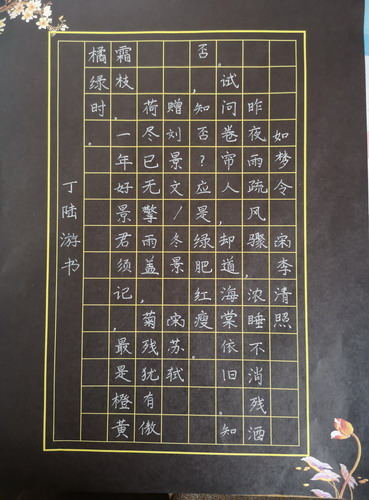 如梦令 宋李清照
昨夜雨疏风骤,浓睡不消残酒
。试问卷帘人,却道海棠依旧。知
否,知否?应是绿肥红瘦。
赠刘景文/冬景 宋苏轼
荷尽已无擎雨盖,菊残犹有傲
霜枝。一年好景君须记,最是橙黄
橘绿时。
丁陆游书